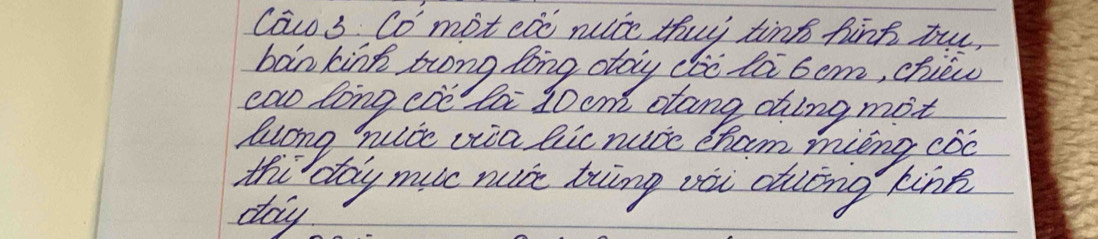 Câu 3. Có một cốc nước thuỷ tinh hình trụ,
bán kính trong lòng đáy cốc là 6cm, chiều
cao lòng cốc là 10cm đang đựng một
lượng nước vừa lúc nước chạm miệng cốc
thì đáy mực nước trùng với đường kính
đáy